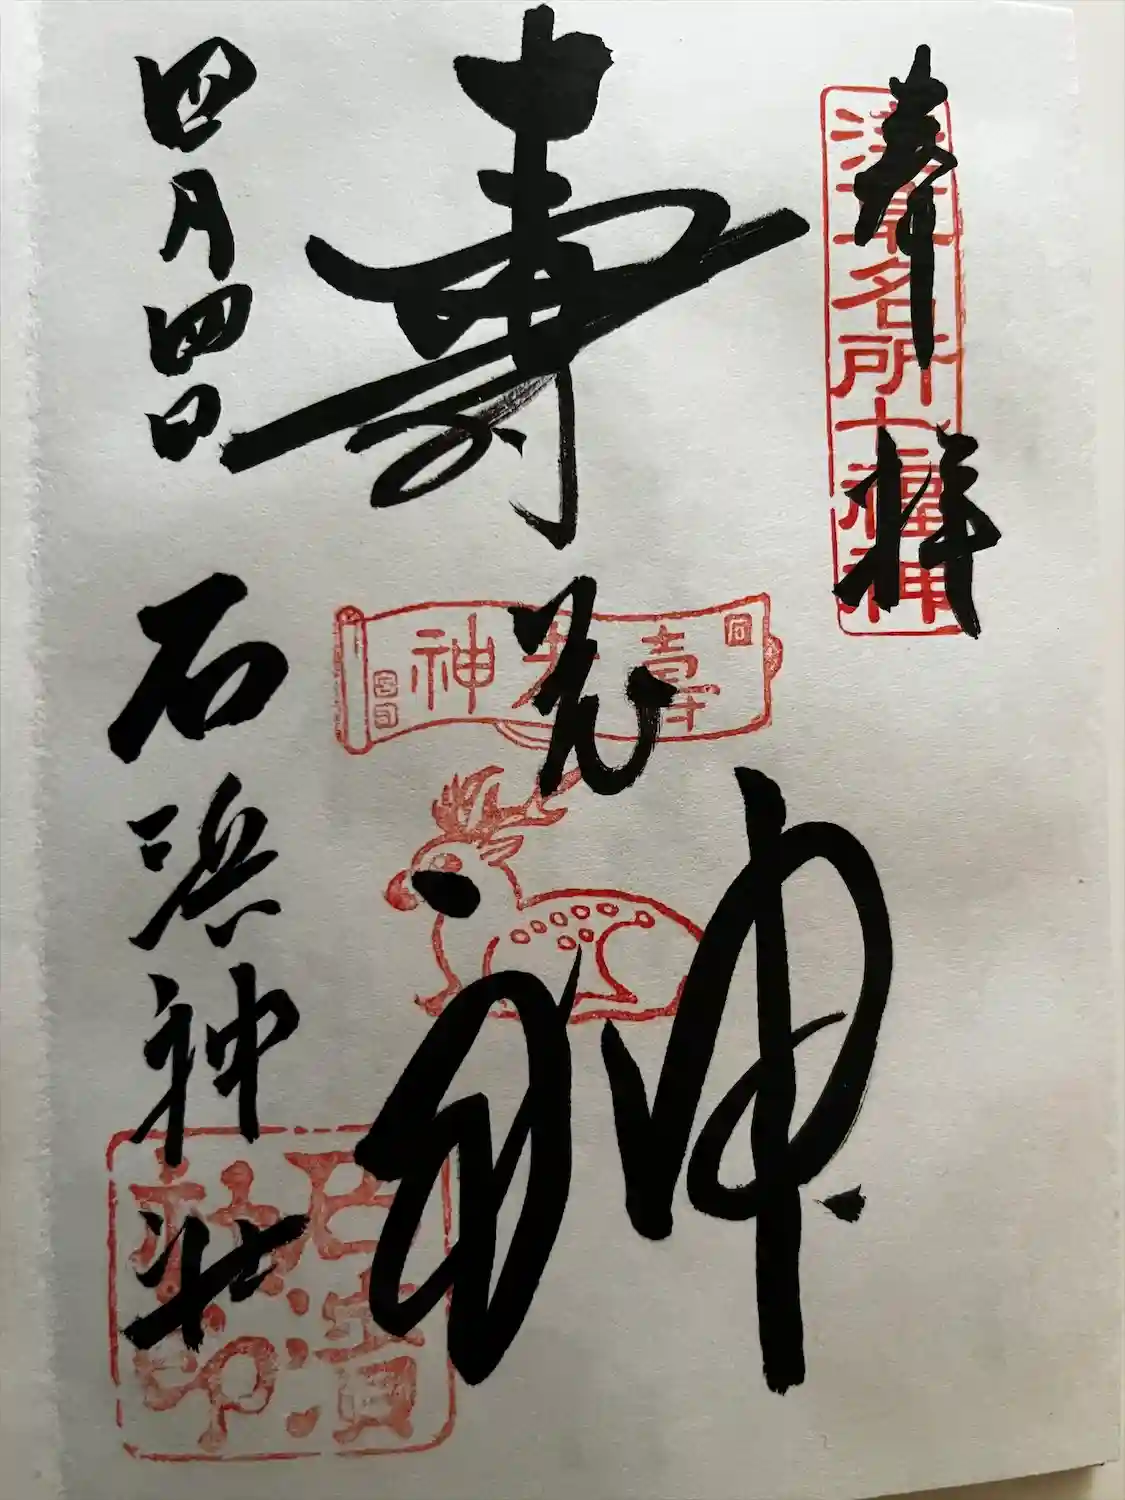 奉拝
浅草名所七福神
寿老神
寿老神
四月四日
石浜神社
石濱社印